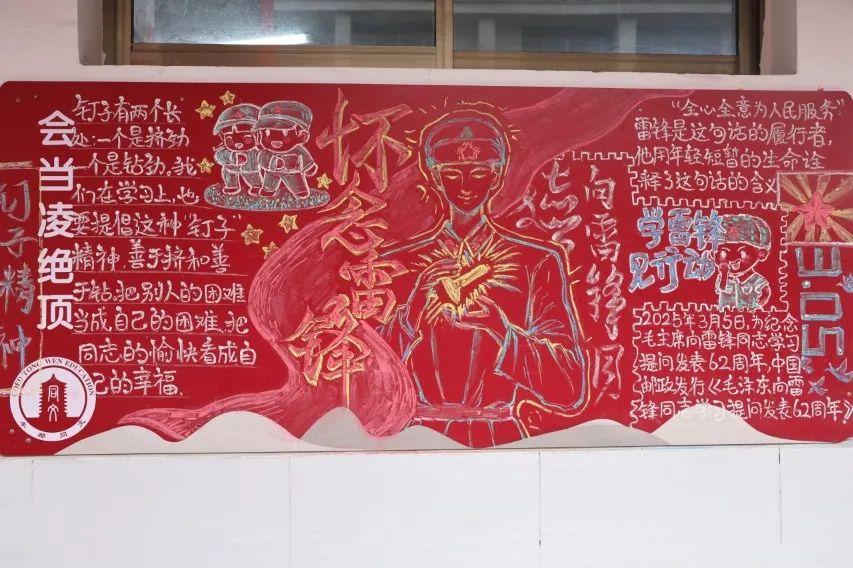 会当凌绝顶
钉子精神
钉子有两个长
处:一个是挤劲
一个是钻劲,我
们在学习上,也
要提倡这种“钉子
精神,善于挤和善
于钻.把别人的困难
当成自己的困难,把
同志的愉快看成自
己的幸福.
怀念雷锋
“全心全意为人民服务”
雷锋是这句话的履行者,
他用年轻短暂的生命诠
释了这句话的含义
学雷锋
见行动
3.05
2025年3月5日,为纪念
毛主席向雷锋同志学习
提问发表62周年,中国
邮政发行《毛泽东向雷
锋同志学习提问发表62周年》
TONG WEN EDUCATION
同文